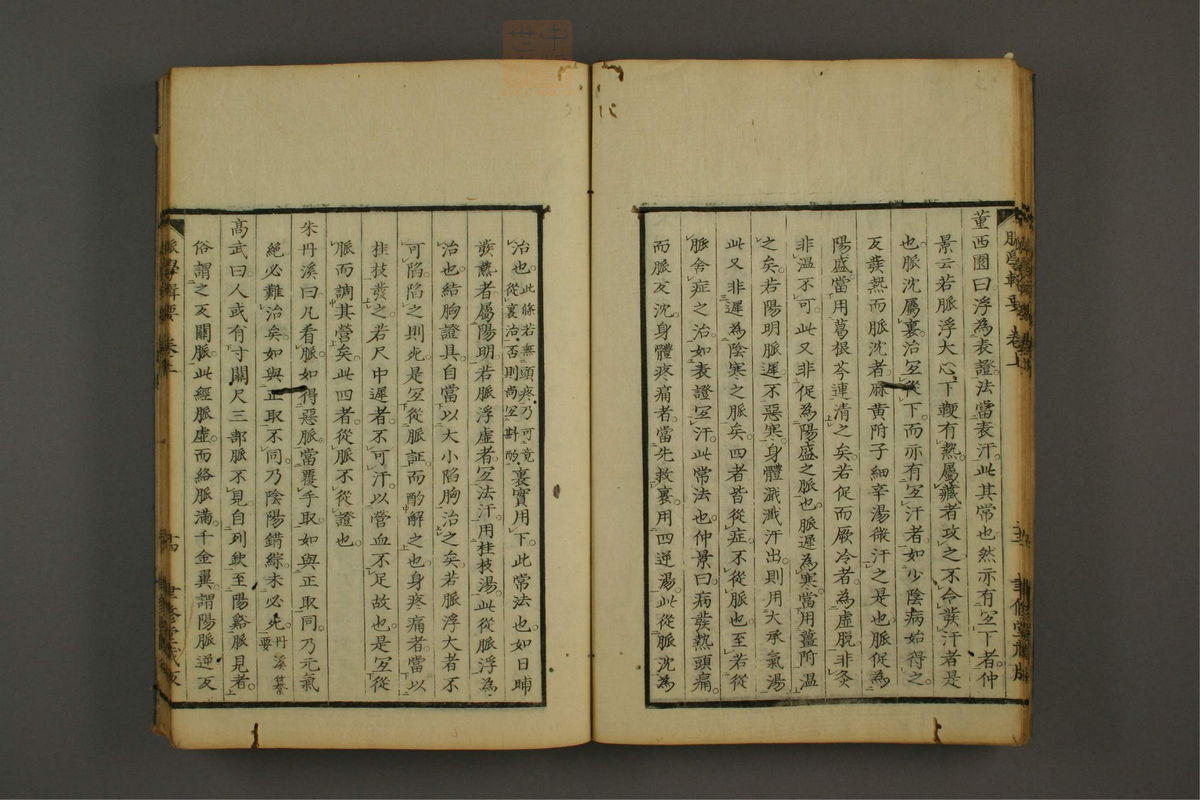 董西園曰浮為表證法當表汗此其常也然亦有宐下者仲
景云若脈浮大心下鞕有熱屬藏者攻之不令發汗者是
也脈沈屬裏治宐從下而亦有宐汗者如少陰病始得之
反發熱而脈沈者麻黃附子細辛湯微汗之是也脈促為
陽盛當用葛根芩連清之矣若促而厥冷者為虛脫非灸
非溫不可此又非促為陽盛之脈也脈遲為寒當用薑附溫
之矣若陽明脈遲不惡寒身體濈濈汗出則用大承氣湯
此又非遲為陰寒之脈矣四者皆從症不從脈也至若從
脈舍症之治如表證宐汗此常法也仲景曰病發熱頭痛
而脈反沈身體疼痛者當先救裏用四逆湯此從脈沈為
治也此條若無頭疼乃可竟從裏治否則尚宐斟酌裏實用下此常法也如日晡
發熱者屬陽明若脈浮虛者宐法汗用桂技湯此從脈浮為
治也結胸證具自當以大小陷胸治之矣若脈浮大者不
可陷陷之則死是宐從脈証而酌解之也身疼痛者當以
桂技發之若尺中遲者不可汗以營血不足故也是宐從
脈而調其營矣此四者從脈不從證也
朱丹溪曰凡看脈如得惡脈當覆手取如與正取同乃元氣
絕必難治矣如與正取不同乃陰陽錯綜未必死丹溪纂要
高武曰人或有寸關尺三部脈不見自列缺至陽谿脈見者
俗謂之反關脈此經脈虛而絡脈滿千金翼謂陽脈逆反
脈學輯要 卷上